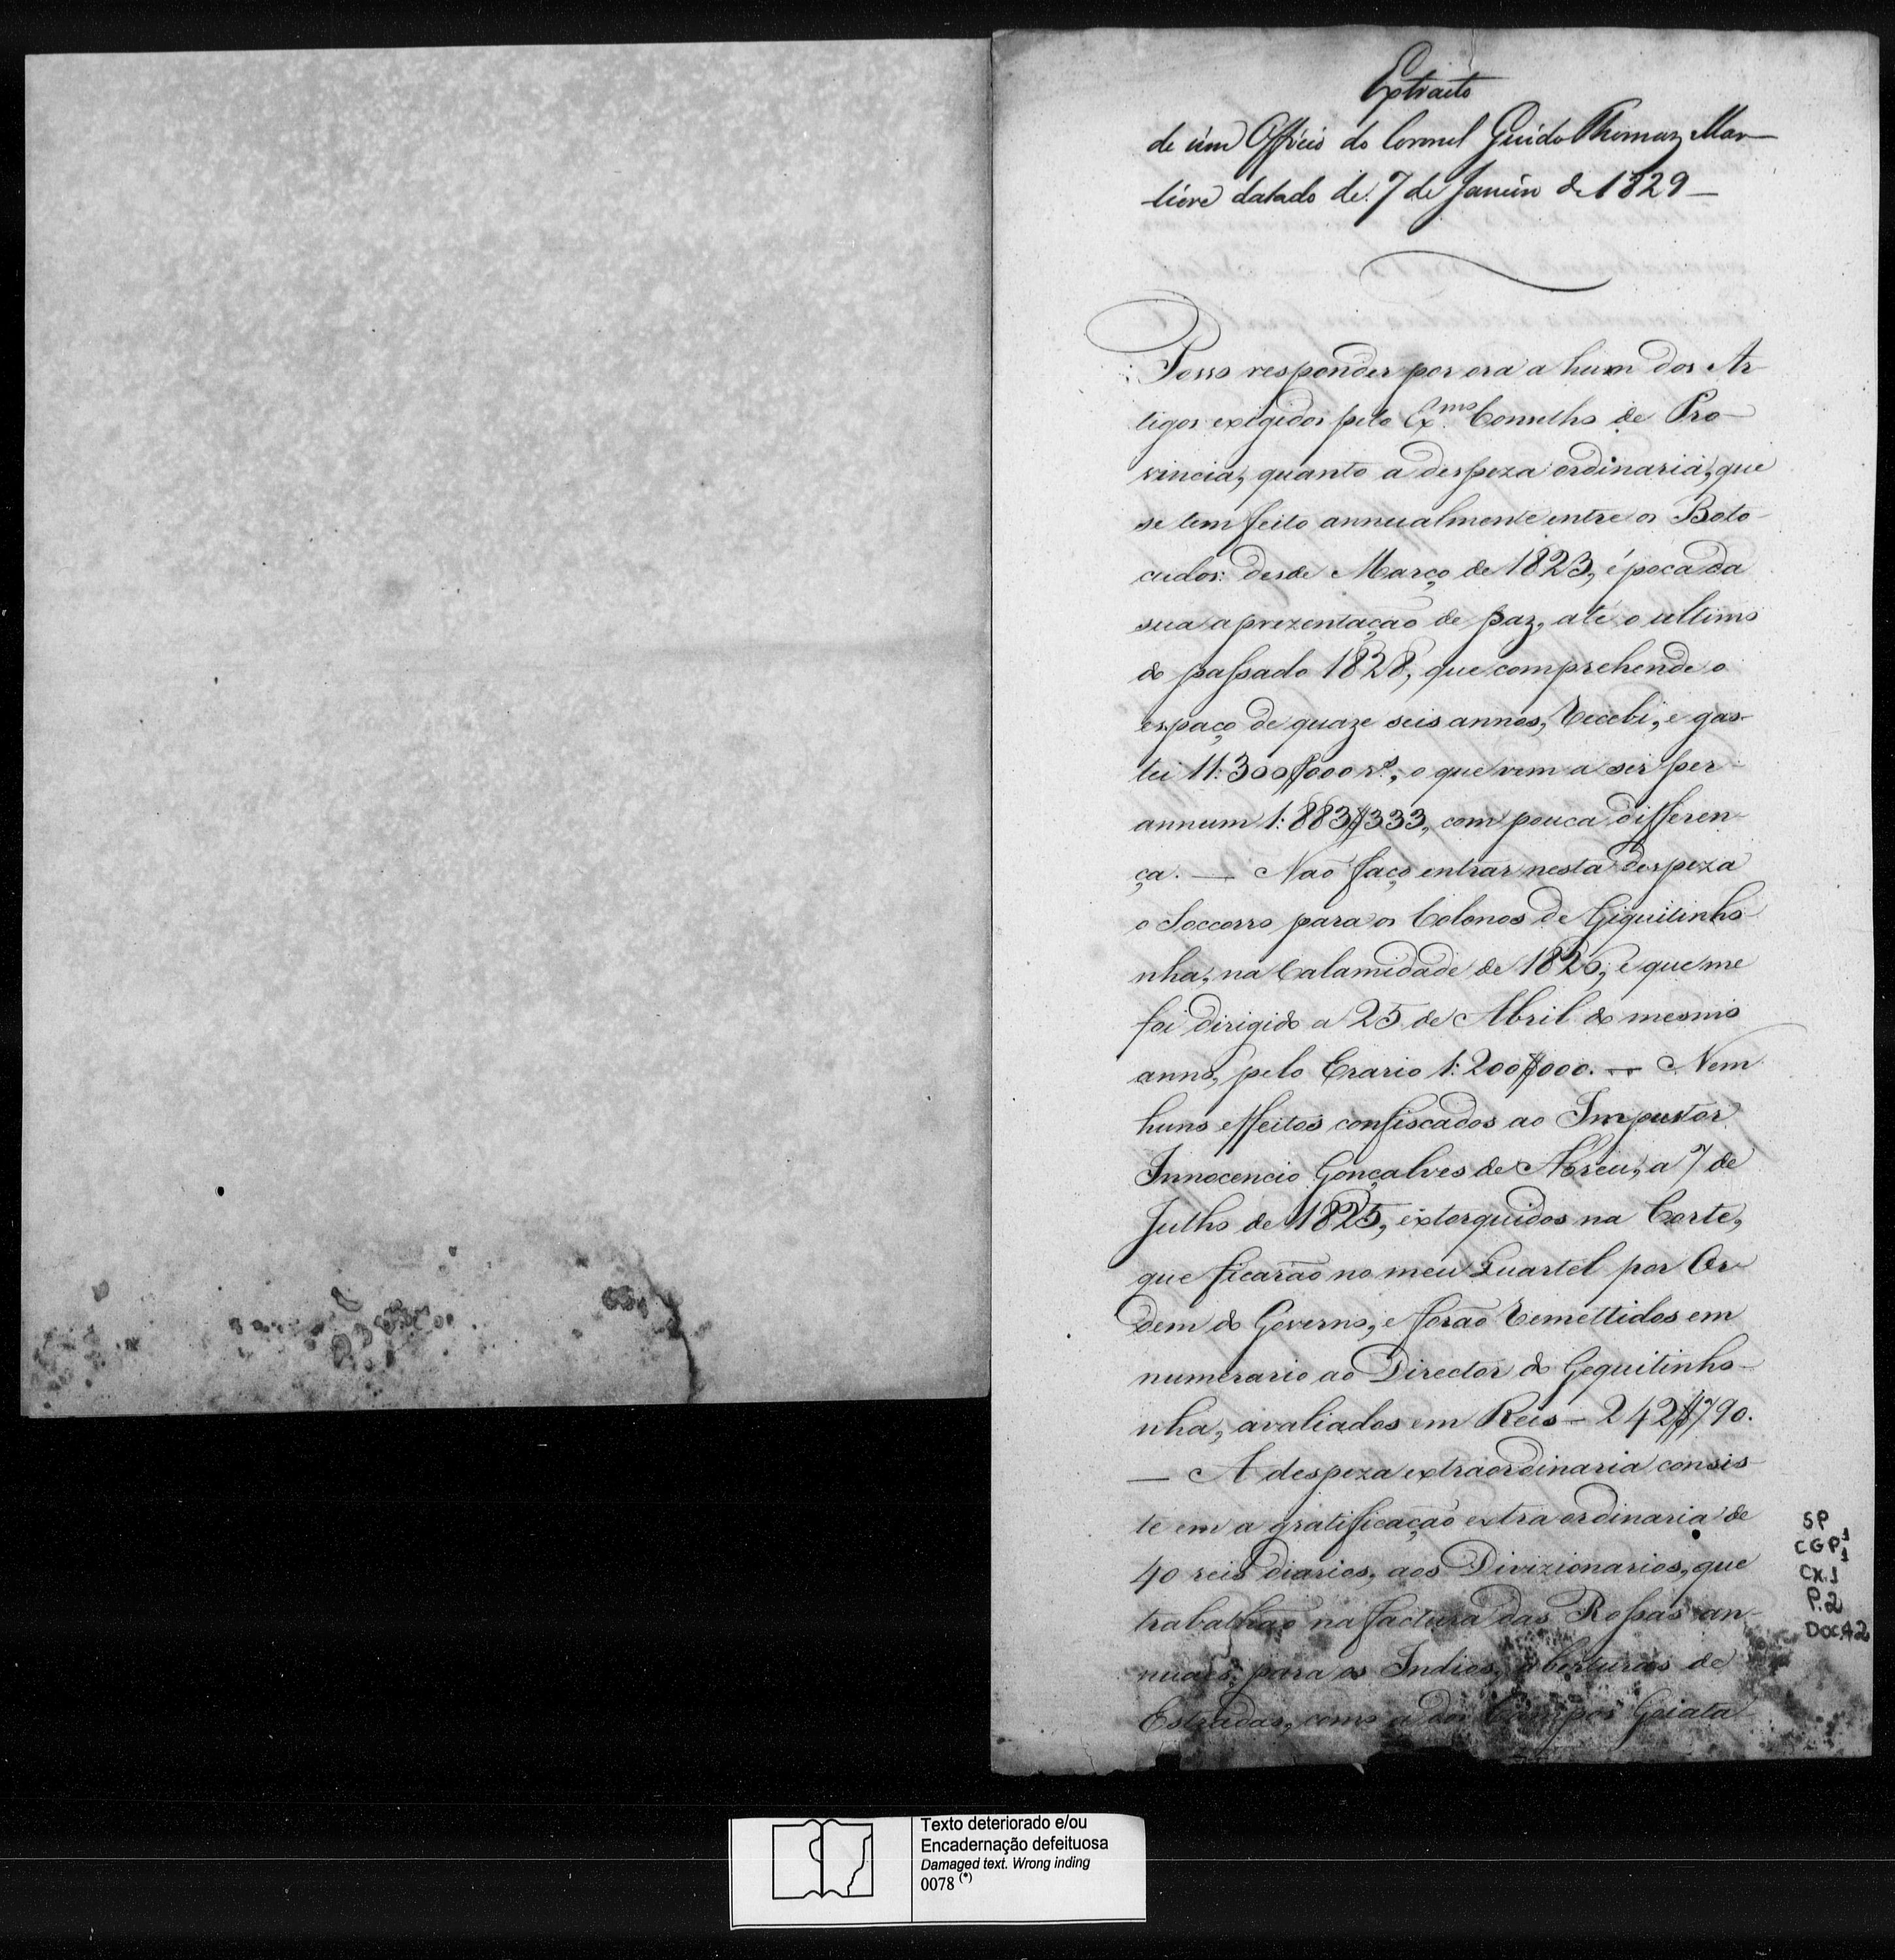 Extracto
de um Officio do Coronel Guido Thomaz Mar-
liere datado de 7 de Janeiro de 1829 —
Posso responder por ora a hum dos Ar-
tigos exigidos pelo Ex.mo Conselho de Pro-
vincia, quanto a despeza ordinaria, que
se tem feito annualmente entre os Boto-
cudos: desde Março de 1823, época da
sua aprezentação de paz, até o ultimo
do passado 1828, que comprehende o
espaço de quaze seis annos, Recebi, e gas-
tei 11:300$000 rs., o que vem a ser per
annum 1:883$333, com pouca differen-
ça. — Não faço entrar nesta despeza
o Soccorro para os Colonos de Giquitinho-
nha, na Calamidade de 1826, e que me
foi dirigido a 25 de Abril do mesmo
anno, pelo Erario 1:200$000. — Nem
huns effeitos confiscados ao Impostor
Innocencio Gonçalves de Abreu, a 7 de
Julho de 1825, extorquidos na Corte,
que ficarão no meu Quartel por Or-
dem do Governo, e forão Remettidos em
numerario ao Director do Gequitinho-
nha, avaliados em Reis — 242$790.
— A despeza extraordinaria consis-
te em a gratificação extraordinaria de
40 reis diarios, aos Divizionarios, que
trabalhão na factura das Rossas an-
nuaes, para os Indios, aberturas de
Estradas, como a dos Campos Goiata-
SP 1
CGP 1
CX.1
P.2
Doc.42
Texto deteriorado e/ou
Encadernação defeituosa
Damaged text. Wrong inding
0078 (*)